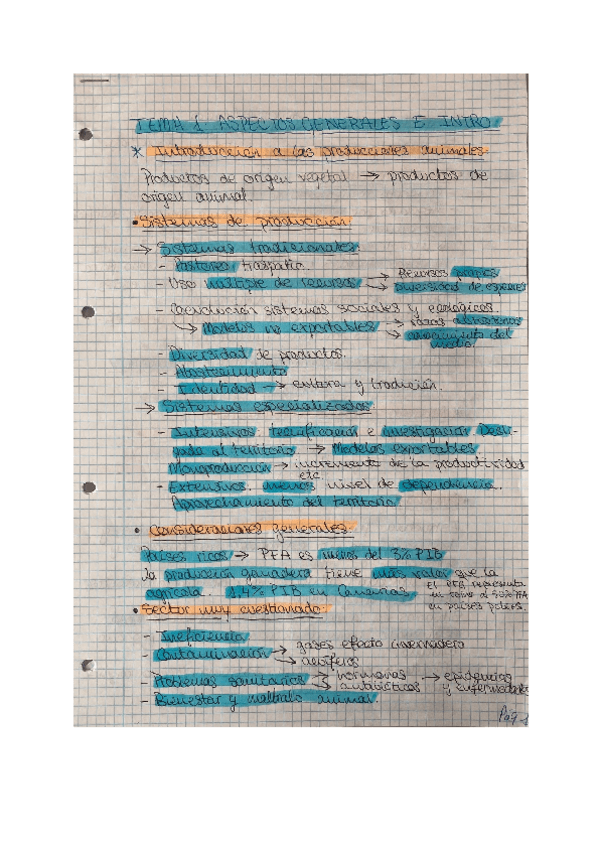 TEMA 1 ASPECTOS GENERALES E INTRO
* Introducción a las producciones animales.
Productos de origen vegetal → productos de
origen animal.
• Sistemas de producción
→ Sistemas tradicionales
- Pastoreo, traspatio.
- Uso múltiple de recursos → Recursos propios
→ Diversidad de especies
- Coevolución sistemas sociales y ecológicos.
→ Modelos no exportables → razas autóctonas
→ conocimiento del
medio.
- Diversidad de productos.
- Abastecimiento
- Identidad → cultura y tradición.
→ Sistemas especializados
- Intensivos tecnificación e investigación Desli-
gada al territorio → Modelos exportables
Monoproducción → incremento de la productividad
etc
- Extensivos. menos nivel de dependencia.
Aprovechamiento del territorio
• Consideraciones generales.
Países ricos → PFA es menos del 3% PIB
la producción ganadera tiene más valor que la
agrícola. 1,4% PIB en Canarias
en torno al 50% PFA
en países pobres.
• Sector muy cuestionado
- Ineficiencia
- Contaminación → gases efecto invernadero
→ acuíferos
- Problemas sanitarios → hormonas → epidemias
→ antibióticos y enfermedades
- Bienestar y maltrato animal
Pág 1